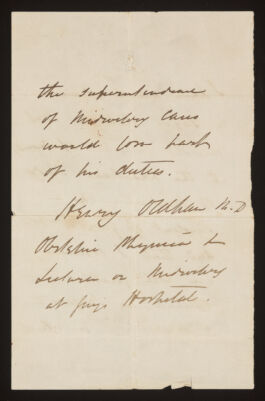 the superintendence
of Midwifery Cases
would form part
of his duties.
Henry Oldham M.D
Obstetric Physician to
Lecturer on Midwifery
at Guys Hospital.